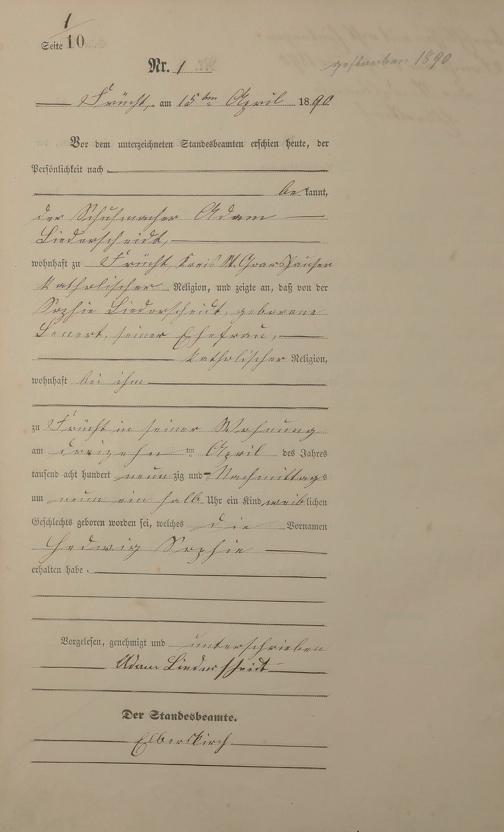 1
Seite 10
gestorben 1890
Nr. 1
Frücht, am 15ten April 1890
Vor dem unterzeichneten Standesbeamten erschien heute, der
Persönlichkeit nach
bekannt,
der Schuhmacher Adam
Liederscheidt,
wohnhaft zu Frücht, Kreis St. Goarshausen
katholischer Religion, und zeigte an, daß von der
Sophie Liederscheidt, geborene
seiner Ehefrau,
katholischer Religion,
wohnhaft bei ihm
zu Frücht in seiner Wohnung
am dreizehnten April des Jahres
tausend acht hundert neunzig und Nachmittags
um neun ein halb Uhr ein Kind weiblichen
Geschlechts geboren worden sei, welches die Vornamen
Hedwig Sophie
erhalten habe.
Vorgelesen, genehmigt und unterschrieben
Adam Liederscheidt
Der Standesbeamte.
Elberskirch